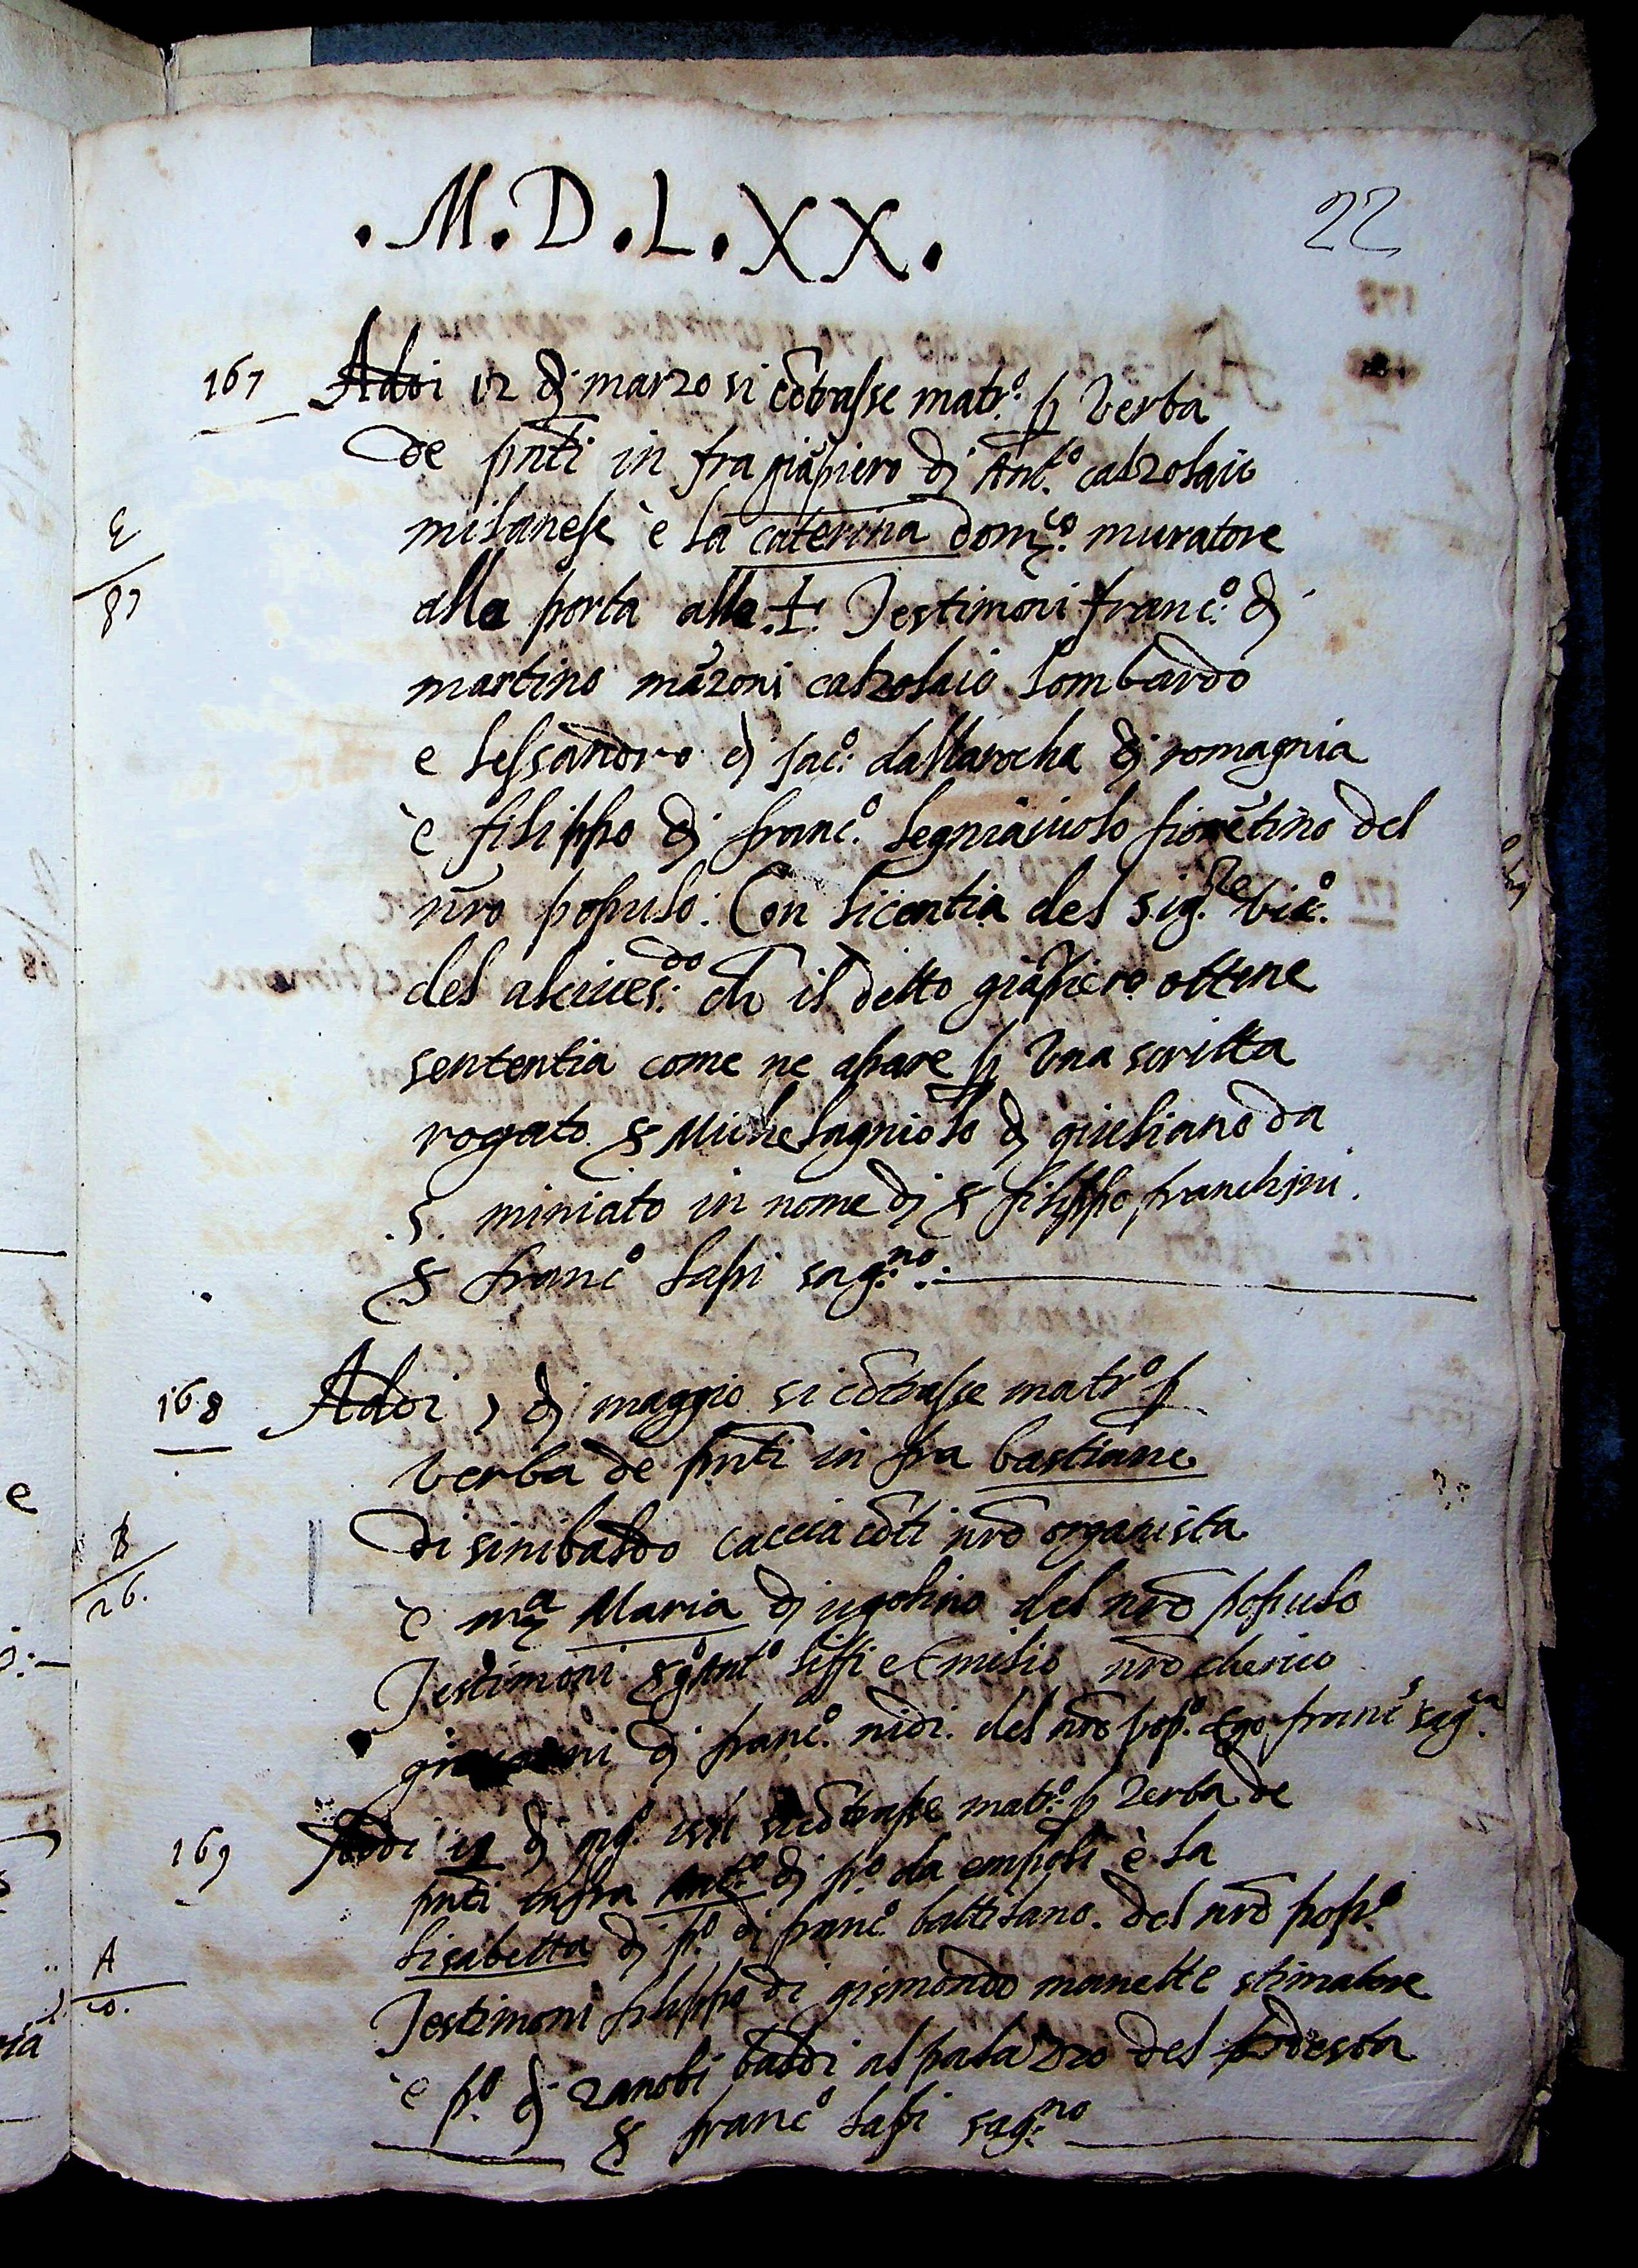 .M.D.L.XX.
22
167 Adoi 12 dj marzo si cōtrasse matr.º p verba
de pn̄ti in fra giāpiero dj Ant.º calzolaio
milanese è la caterina domco. muratore
E
87
alla porta alla .+. Testimoni franc.º dj
martino māzoni calzolaio lombardo
e lessandro dj Jac.º dallarocha dj romagnia
è filippo dj franc.º legniaiuolo fiorētino del
nr̄o populo. Con licentia del sig.re vic.º
del arciues.do ch̄ il detto giāpiero ottene
sententia come ne apare p vna scritta
rogato s Michelagniolo dj giuliano da
.S. miniato in nome dj s filippo franchini.
s franc.º lapi sag.no
168 Adoi dj maggio si cōtrasse matr.º p
verba de pn̄ti in fra bastiano
di sinibaldo caccia cōti nr̄o organista
B
26.
è m.a Maria dj ugolino del nr̄o populo
Testimoni Ant.º liffi e milio nr̄o cherico
dj franc.º nidi. del nr̄o pop.º Ego franc.s sag.ta
169 dj si cōtrasse matr.º p verba de
pn̄ti infra Ant.º dj p.º da empoli è la
lisabetta dj p.º dj franc.º battilano. del nr̄o pop.º
A
10.
Testimoni filippo di gismondo manette stimatore
è p.º dj zanobi baldi al palazzo del podesta
s franc.º lapi sag.no